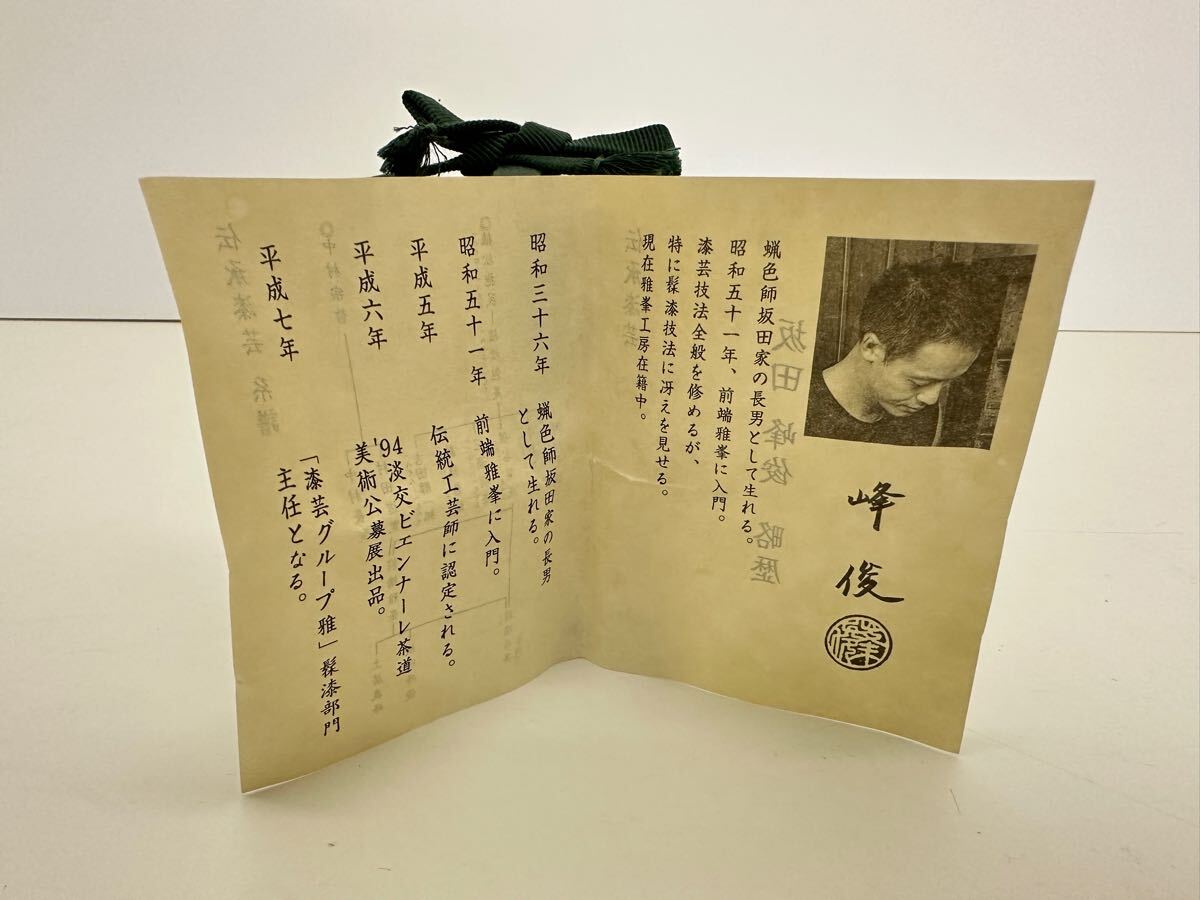 峰俊
蝋色師坂田家の長男として生れる。
昭和五十一年、前端雅峯に入門。
漆芸技法全般を修めるが、
特に髹漆技法に冴えを見せる。
現在雅峯工房在籍中。
昭和三十六年 蝋色師坂田家の長男
として生れる。
昭和五十一年 前端雅峯に入門。
平成五年 伝統工芸師に認定される。
平成六年 '94淡交ビエンナーレ茶道
美術公募展出品。
平成七年 「漆芸グループ雅」髹漆部門
主任となる。
坂田 峰俊 略歴
伝承漆芸
伝承漆芸 系譜